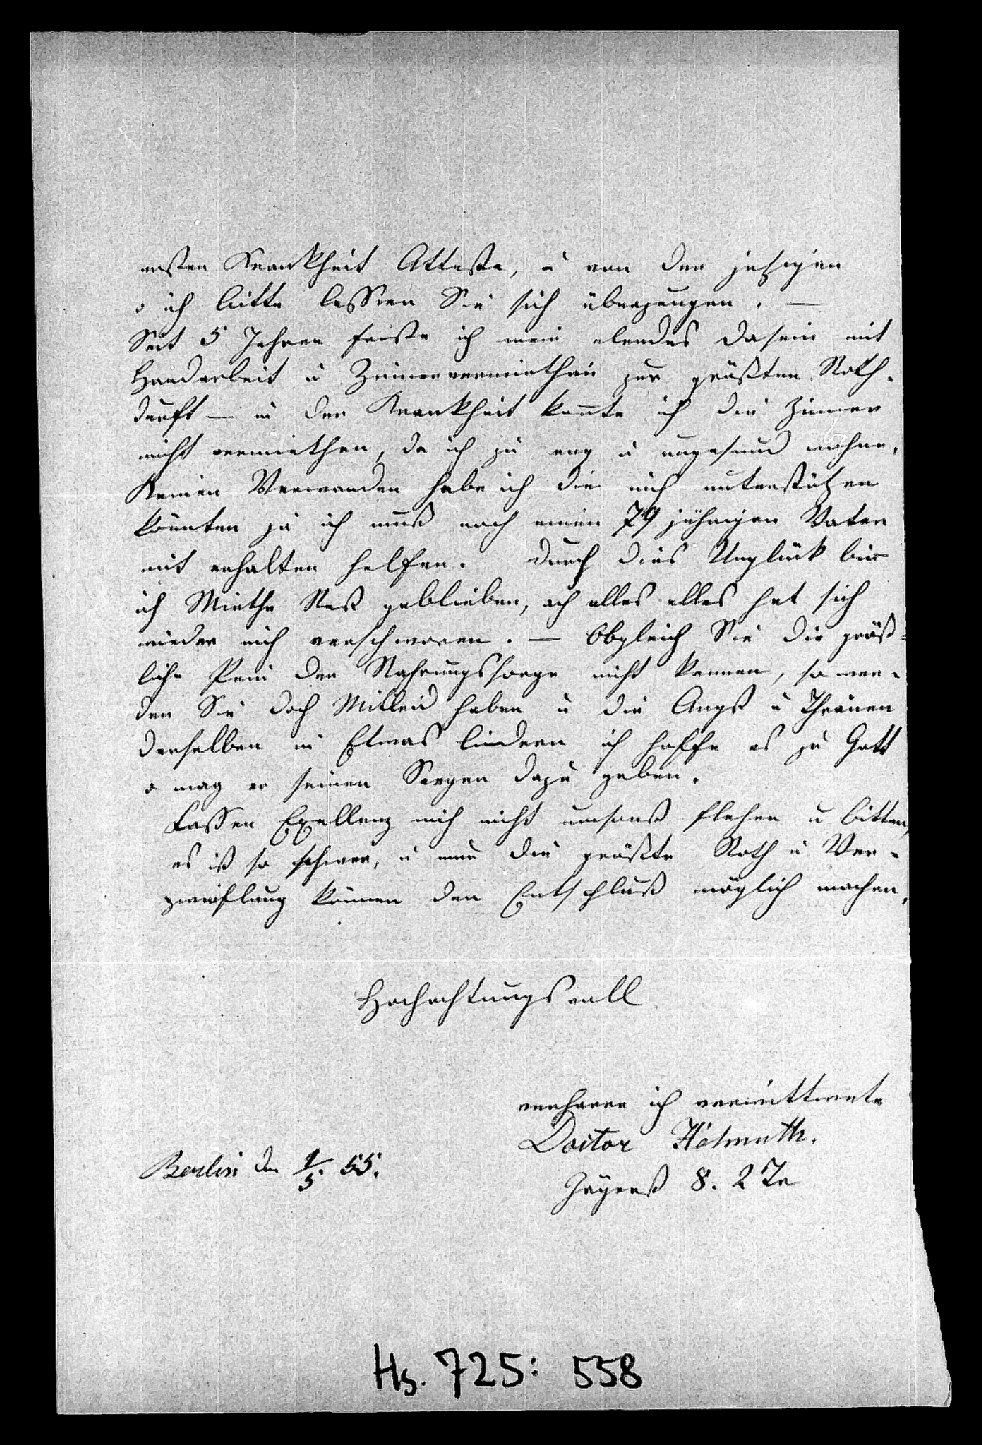 ersten Krankheit Atteste, u von der jetzigen
o ich bitte lassen Sie sich überzeugen. —
Seit 5 Jahren friste ich mein elendes Dasein mit
Handarbeit u Zimmervermiethen zur größten Noth-
durft — in der Krankheit konnte ich die Zimmer
nicht vermiethen, da ich zu eng u ungesund wohne,
Keinen Verwanden habe ich die mich unterstützen
könnten ja ich muß noch einen 79 jährigen Vater
mit erhalten helfen. Durch dies Unglück bin
ich Miethe Rest geblieben, ach alles alles hat sich
wieder mich verschworen. — Obgleich Sie die gräß-
liche Pein der Nahrungssorge nicht kennen, so wer-
den Sie doch Mitleid haben u die Angst u Thränen
derselben in Etwas lindern ich hoffe es zu Gott
o mag er seinen Seegen dazu geben.
Lassen Exellenz mich nicht umsonst flehen u bitten,
es ist so schwer, u nur die größte Noth u Ver-
zweiflung können den Entschluß möglich machen.
Hochachtungsvoll
verharre ich verwittwete
Doctor Helmuth.
Berlin den 1/5. 55.
Jägerst 8. 2 Tr
Hs. 725: 558